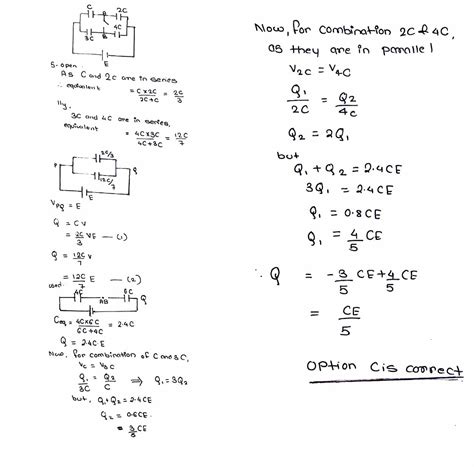 C 2C
A
S
B
3C 4C
E
S-open
As C and 2C are in series
∴ equivalent = C×2C / 2C+C = 2C/3
lly,
3C and 4C are in series,
equivalent = 4C×3C / 4C+3C = 12C/7
2C/3
P Q
12C/7
E
VPQ = E
Q = CV
= 2C/3 VE — (1)
Q = 12C/7 V
= 12C/7 E — (2)
closed
4C 6C
AB Q
Ceq = 4C×6C / 6C+4C = 2.4C
Q = 2.4CE
Now, for combination of C and 3C,
VC = V3C
Q1/3C = Q2/C ⇒ Q1 = 3Q2
but, Q1+Q2 = 2.4CE
Q2 = 0.6CE
= 3/5 CE
Now, for combination 2C & 4C,
as they are in parallel
V2C = V4C
Q1/2C = Q2/4C
Q2 = 2Q1
but
Q1 + Q2 = 2.4CE
3Q1 = 2.4CE
Q1 = 0.8CE
Q1 = 4/5 CE
∴ Q = -3/5 CE + 4/5 CE
= CE/5
Option C is correct